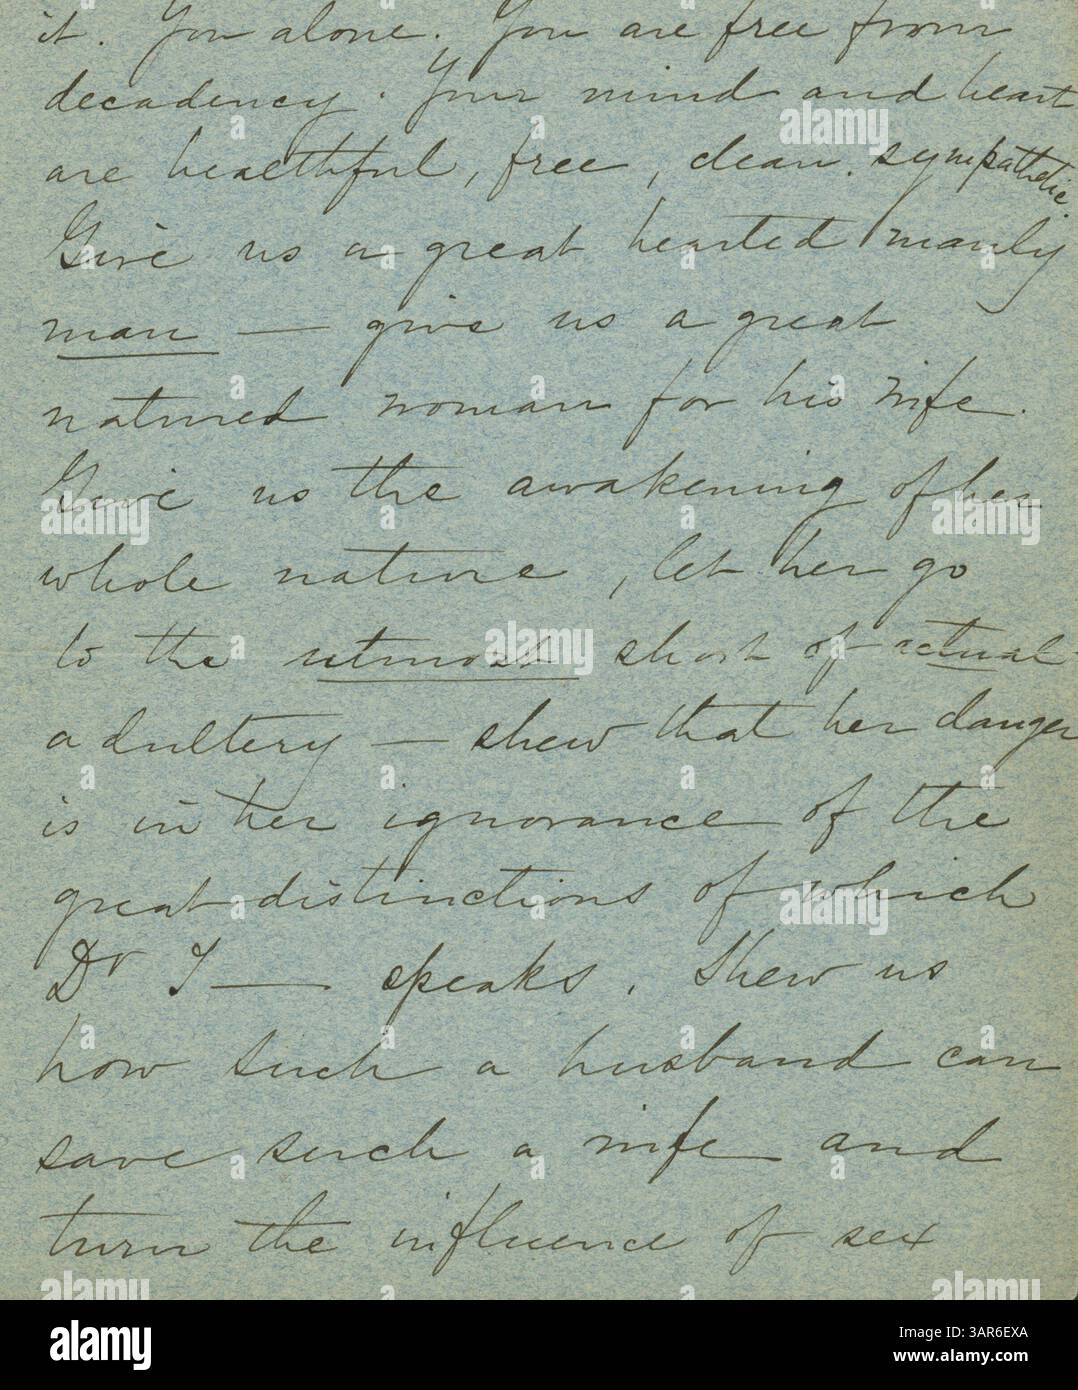 it. You alone. You are free from
decadency. Your mind and heart
are healthful, free, clean, sympathetic.
Give us a great hearted manly
man — give us a great
natured woman for his wife.
Give us the awakening of her
whole nature, let her go
to the utmost short of actual
adultery — shew that her danger
is in her ignorance of the
great distinctions of which
Dr T— speaks. Shew us
how such a husband can
save such a wife and
turn the influence of sex
alamy
Image ID: 3AR6EXA
www.alamy.com